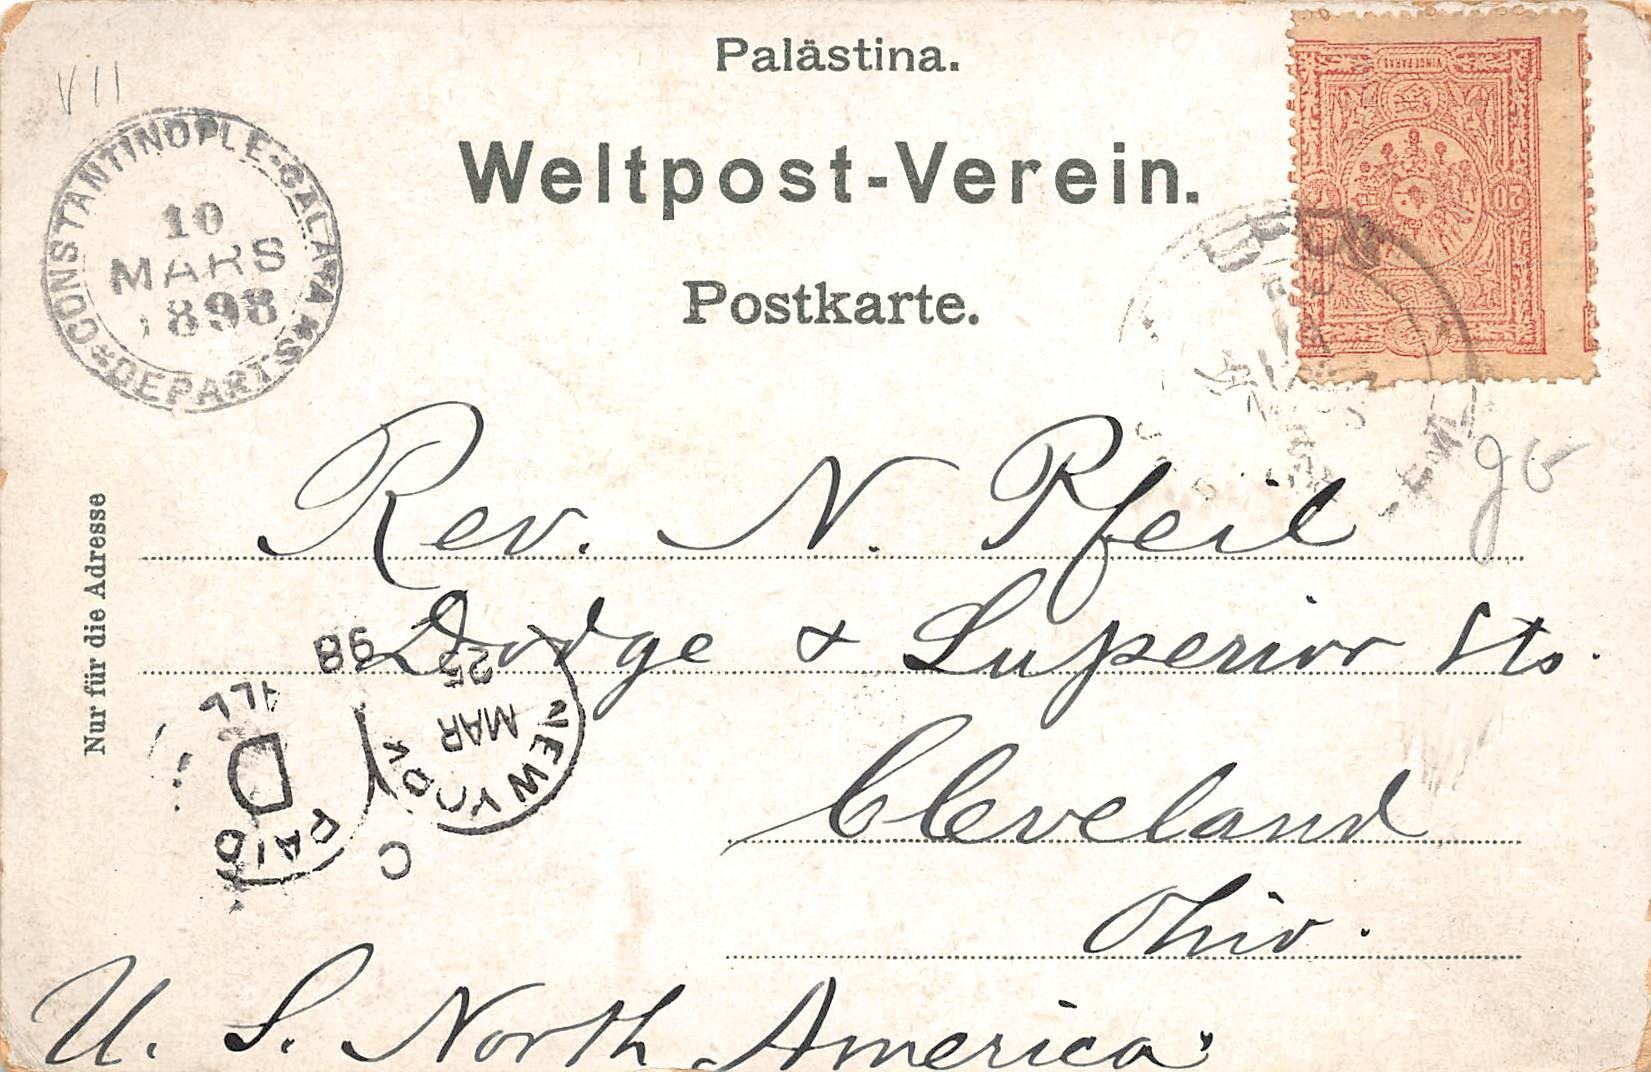 Palästina.
Weltpost-Verein.
Postkarte.
VII
CONSTANTINOPLE-GALATA
10
MARS
1898
DEPARTS
VINGT PARAS
20
Nur für die Adresse
Rev. N. Pfeil
Dodge & Superior Sts.
Cleveland
Ohio.
U. S. North America.
NEW YORK
MAR
25
98
PAID
D
ALL
C